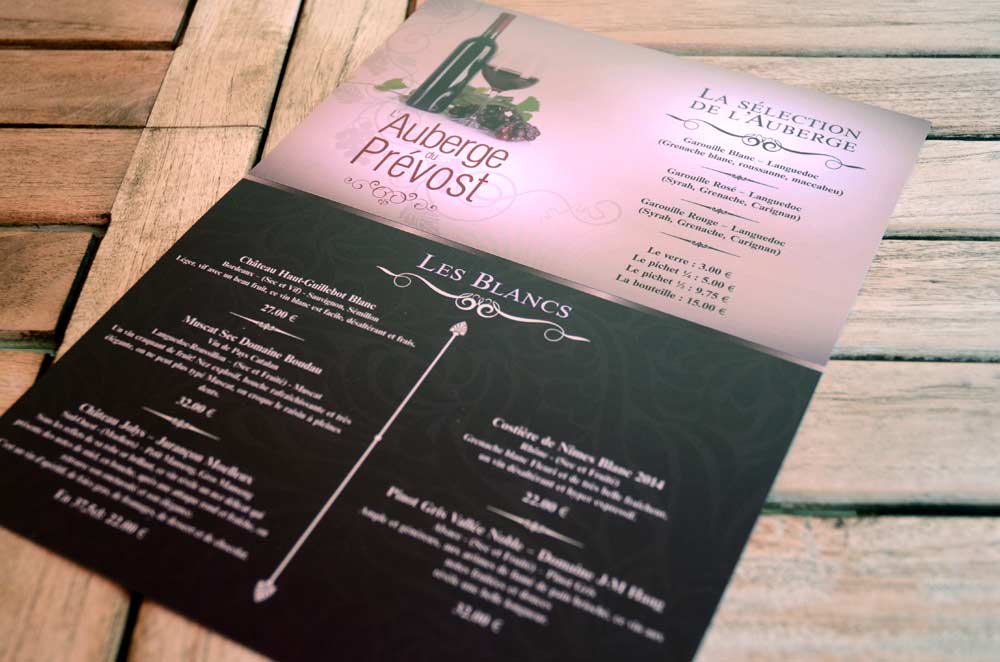 L'Auberge
du
Prévost
La sélection
de l'Auberge
Garouille Blanc – Languedoc
(Grenache blanc, roussanne, maccabeu)
Garouille Rosé – Languedoc
(Syrah, Grenache, Carignan)
Garouille Rouge – Languedoc
(Syrah, Grenache, Carignan)
Le verre : 3.00 €
Le pichet ¼ : 5.00 €
Le pichet ½ : 9.75 €
La bouteille : 15.00 €
Les Blancs
Château Haut-Guillebot Blanc
Bordeaux – (Sec et Vif) - Sauvignon, Sémillon
Léger, vif avec un beau fruit, ce vin blanc est facile, désaltérant et frais.
27.00 €
Muscat Sec Domaine Boudau
Vin de Pays Catalan
Languedoc-Roussillon – (Sec et Fruité) - Muscat
Un vin craquant de fruit! Nez explosif, bouche rafraîchissante et très
élégante, on ne peut plus typé Muscat, on croque le raisin à pleines
dents.
32.00 €
Château Jolys – Jurançon Moelleux
Sud-Ouest – (Moelleux) - Petit Manseng, Gros Manseng
En 37,5cl: 22.00 €
Costière de Nîmes Blanc 2014
Rhône - (Sec et Fruité)
Grenache blanc Fleuri et de très belle fraîcheur,
un vin désaltérant et hyper expressif.
22.00 €
Pinot Gris Vallée Noble – Domaine J-M Haag
Alsace - (Sec et Fruité) - Pinot Gris
Ample et généreux, aux arômes de fumé de pain brioché, ce vin aux
notes fruitées et douces
révèle une belle longueur.
32.00 €